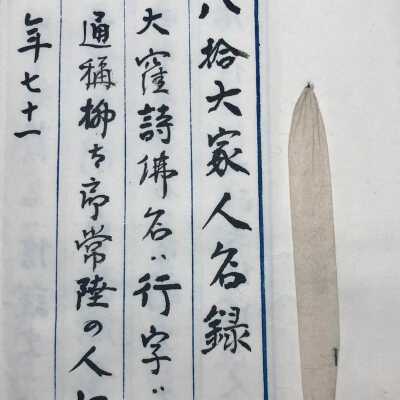 八拾大家人名録
大窪詩佛名ハ行字ハ
通稱柳太郎常陸の人
年七十一